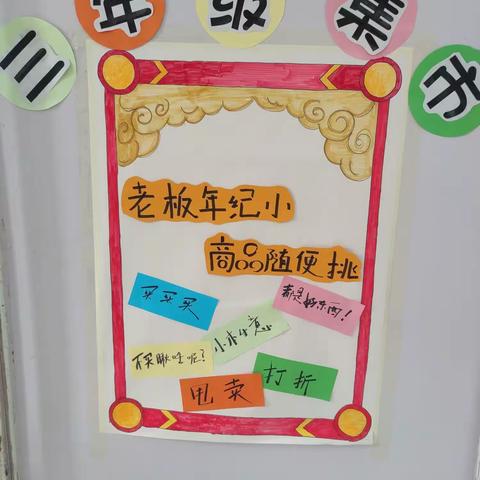 三年级集市
老板年纪小
商品随便挑
买买买
都是好东西！
小本生意
不买瞅啥呢？
打折
甩卖